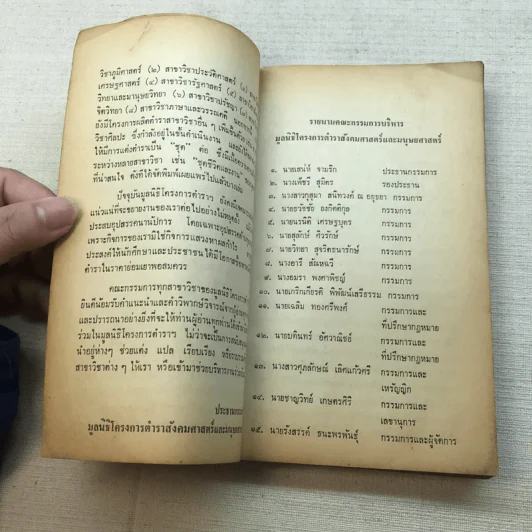 วิชาภูมิศาสตร์ (๒) สาขาวิชาประวัติศาสตร์ (๓)
เศรษฐศาสตร์ (๔) สาขาวิชารัฐศาสตร์ (๕)
วิทยาและมานุษยวิทยา (๖) สาขาวิชาปรัชญา (๗)
จิตวิทยา (๘) สาขาวิชาภาษาและวรรณคดี
ยังมีโครงการผลิตตำราสาขาวิชาอื่น ๆ เพิ่มขึ้น
วิชาศิลปะ ซึ่งกำลังอยู่ในขั้นดำเนินงาน
ให้มีการแต่งตำราเป็น "ชุด" ต่อ ซึ่งมีเนื้อ
ระหว่างหลายสาขาวิชา เช่น "ชุดชีวิตและงาน"
ที่น่าสนใจ ดังที่ได้จัดพิมพ์เผยแพร่ไปแล้ว
ปัจจุบันมูลนิธิโครงการตำราฯ ยังคง
แน่วแน่ที่จะขยายงานของเราต่อไปอย่างไม่หยุดยั้ง
ประสบอุปสรรคนานัปการ โดยเฉพาะอุปสรรค
เพราะกิจการของเรามิใช่กิจการแสวงหาผลกำไร
ประสงค์ให้นักศึกษาและประชาชนได้มีโอกาส
ตำราในราคาย่อมเยาพอสมควร
คณะกรรมการทุกสาขาวิชาของมูลนิธิโครงการ
ยินดีน้อมรับคำแนะนำและคำวิพากษ์วิจารณ์จาก
และปรารถนาอย่างยิ่งที่จะให้ท่านผู้อ่านทุกท่านได้
ร่วมในมูลนิธิโครงการตำราฯ ไม่ว่าจะเป็นการ
นำอยู่ห่างๆ ช่วยแต่ง แปล เรียบเรียง หรือ
สาขาวิชาต่าง ๆ ให้เรา หรือเข้ามาช่วยบริหารงาน
ประธาน
มูลนิธิโครงการตำราสังคมศาสตร์และมนุษย
รายนามคณะกรรมการบริหาร
มูลนิธิโครงการตำราสังคมศาสตร์และมนุษยศาสตร์
๑. นายเสน่ห์ จามริก ประธานกรรมการ
๒. นางเพ็ชรี สุมิตร รองประธาน
๓. นางสาวกุสุมา สนิทวงศ์ ณ อยุธยา กรรมการ
๔. นายธวัชชัย ยงกิตติกุล กรรมการ
๕. นายนรนิติ เศรษฐบุตร กรรมการ
๖. นายสุลักษ์ ศิวรักษ์ กรรมการ
๗. นายวิทยา สุจริตธนารักษ์ กรรมการ
๘. นางอารี สัณหฉวี กรรมการ
๙. นางอมรา พงศาพิชญ์ กรรมการ
๑๐. นายเกริกเกียรติ พิพัฒน์เสรีธรรม กรรมการ
๑๑. นายเฉลิม ทองศรีพงศ์ กรรมการและ
ที่ปรึกษากฎหมาย
๑๒. นายบดินทร์ อัศวาณิชย์ กรรมการและ
ที่ปรึกษากฎหมาย
๑๓. นางสาวศุภลักษณ์ เลิศแก้วศรี กรรมการและ
เหรัญญิก
๑๔. นายชาญวิทย์ เกษตรศิริ กรรมการและ
เลขานุการ
๑๕. นายรังสรรค์ ธนะพรพันธุ์ กรรมการและผู้จัดการ